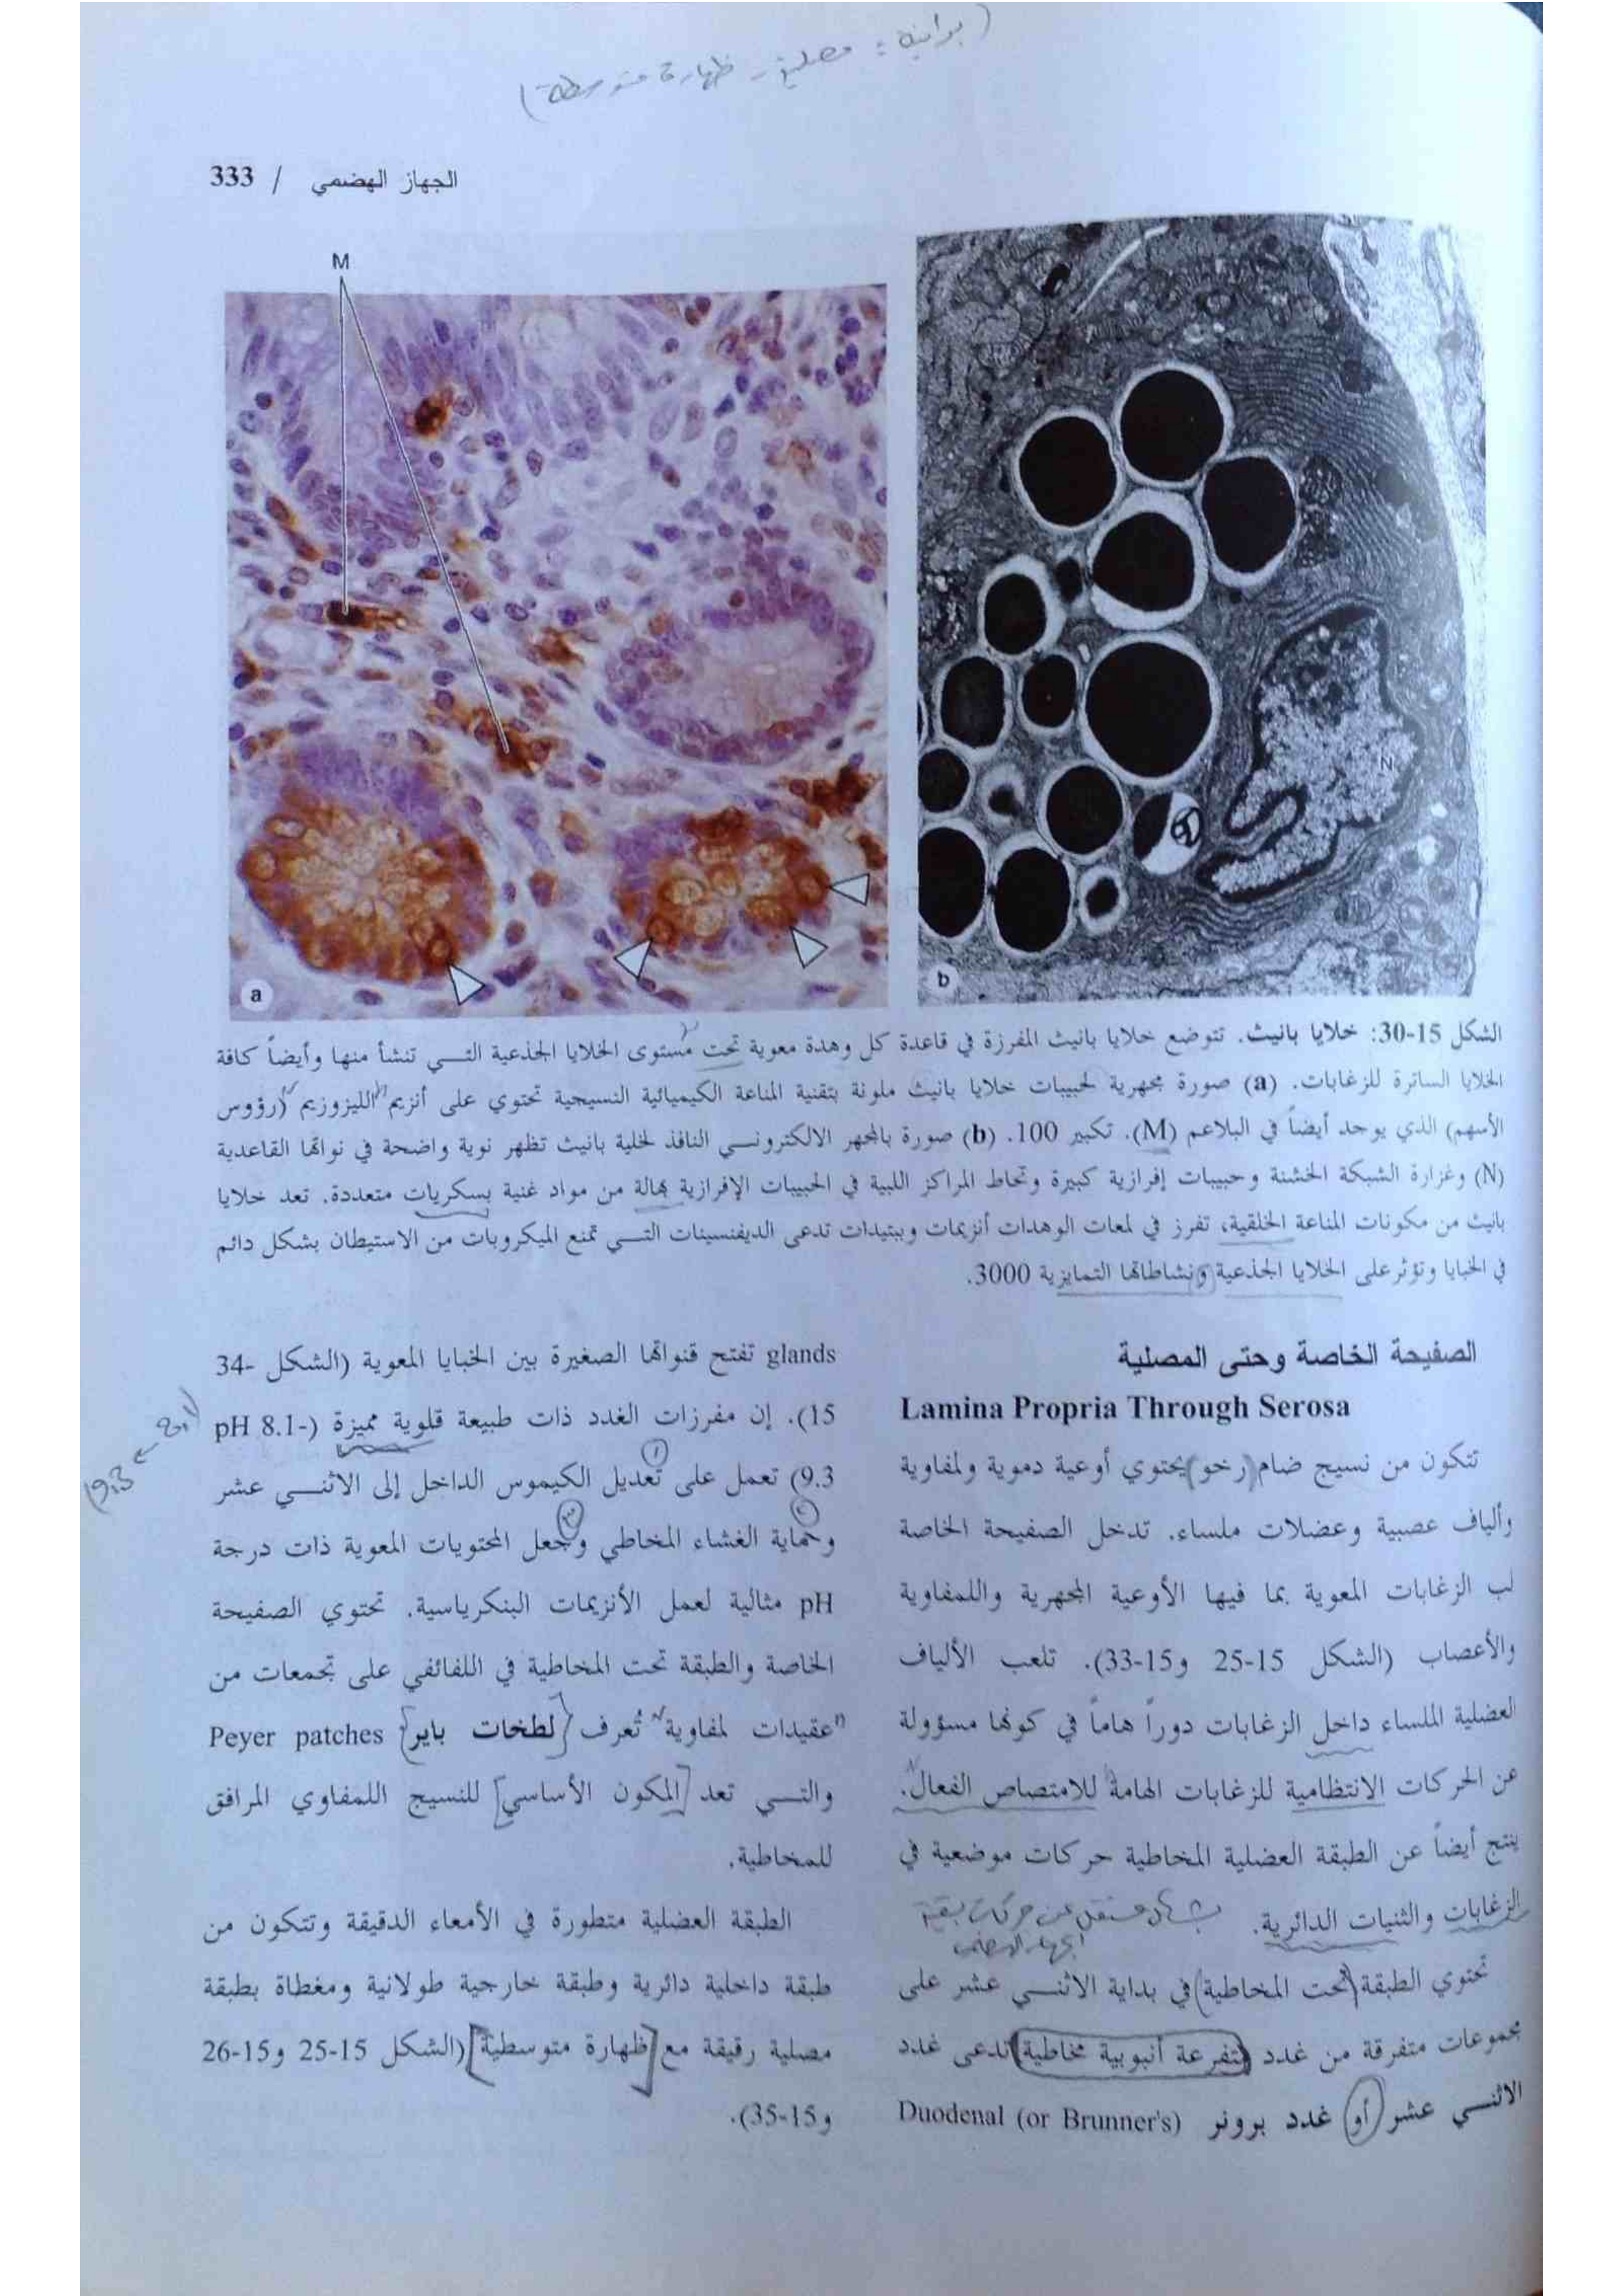 (برانية: مصلية - ظهارة متوسطة)
الجهاز الهضمي / 333
M
N
a
b
الشكل 15-30: خلايا بانيث. تتوضع خلايا بانيث المفرزة في قاعدة كل وهدة معوية تحت مستوى الخلايا الجذعية التـــي تنشأ منها وأيضاً كافة
الخلايا الساترة للزغابات. (a) صورة مجهرية لحبيبات خلايا بانيث ملونة بتقنية المناعة الكيميائية النسيجية تحتوي على أنزيم الليزوزيم (رؤوس
الأسهم) الذي يوجد أيضاً في البلاعم (M). تكبير 100. (b) صورة بالمجهر الالكترونـــي النافذ لخلية بانيث تظهر نوية واضحة في نواتها القاعدية
(N) وغزارة الشبكة الخشنة وحبيبات إفرازية كبيرة وتحاط المراكز اللبية في الحبيبات الإفرازية بهالة من مواد غنية بسكريات متعددة. تعد خلايا
بانيث من مكونات المناعة الخلقية، تفرز في لمعات الوهدات أنزيمات وببتيدات تدعى الديفنسينات التـــي تمنع الميكروبات من الاستيطان بشكل دائم
في الخبايا وتؤثر على الخلايا الجذعية ونشاطاتها التمايزية 3000.
الصفيحة الخاصة وحتى المصلية
Lamina Propria Through Serosa
تتكون من نسيج ضام (رخو) يحتوي أوعية دموية ولمفاوية
وألياف عصبية وعضلات ملساء. تدخل الصفيحة الخاصة
لب الزغابات المعوية بما فيها الأوعية المجهرية واللمفاوية
والأعصاب (الشكل 15-25 و15-33). تلعب الألياف
العضلية الملساء داخل الزغابات دوراً هاماً في كونها مسؤولة
عن الحركات الانتظامية للزغابات الهامة للامتصاص الفعال.
ينتج أيضاً عن الطبقة العضلية المخاطية حركات موضعية في
الزغابات والثنيات الدائرية. بشكل مستقل عن حركات بقية
الجهاز الهضمي
تحتوي الطبقة (تحت المخاطية) في بداية الاثنـــي عشر على
مجموعات متفرقة من غدد متفرعة أنبوبية مخاطية تدعى غدد
الاثنـــي عشر أو غدد برونر Duodenal (or Brunner's)
glands تفتح قنواتها الصغيرة بين الخبايا المعوية (الشكل 34-
15). إن مفرزات الغدد ذات طبيعة قلوية مميزة (pH 8.1-
9.3) تعمل على تعديل الكيموس الداخل إلى الاثنـــي عشر
وحماية الغشاء المخاطي وجعل المحتويات المعوية ذات درجة
pH مثالية لعمل الأنزيمات البنكرياسية. تحتوي الصفيحة
الخاصة والطبقة تحت المخاطية في اللفائفي على تجمعات من
عقيدات لمفاوية تُعرف {لطخات باير} Peyer patches
والتـــي تعد [المكون الأساسي] للنسيج اللمفاوي المرافق
للمخاطية.
الطبقة العضلية متطورة في الأمعاء الدقيقة وتتكون من
طبقة داخلية دائرية وطبقة خارجية طولانية ومغطاة بطبقة
مصلية رقيقة مع [ظهارة متوسطية] (الشكل 15-25 و15-26
و15-35).
9.3 ← 8.1